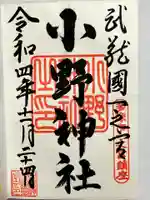 武蔵國一之宮
小野神社
令和四年十二月二十四日